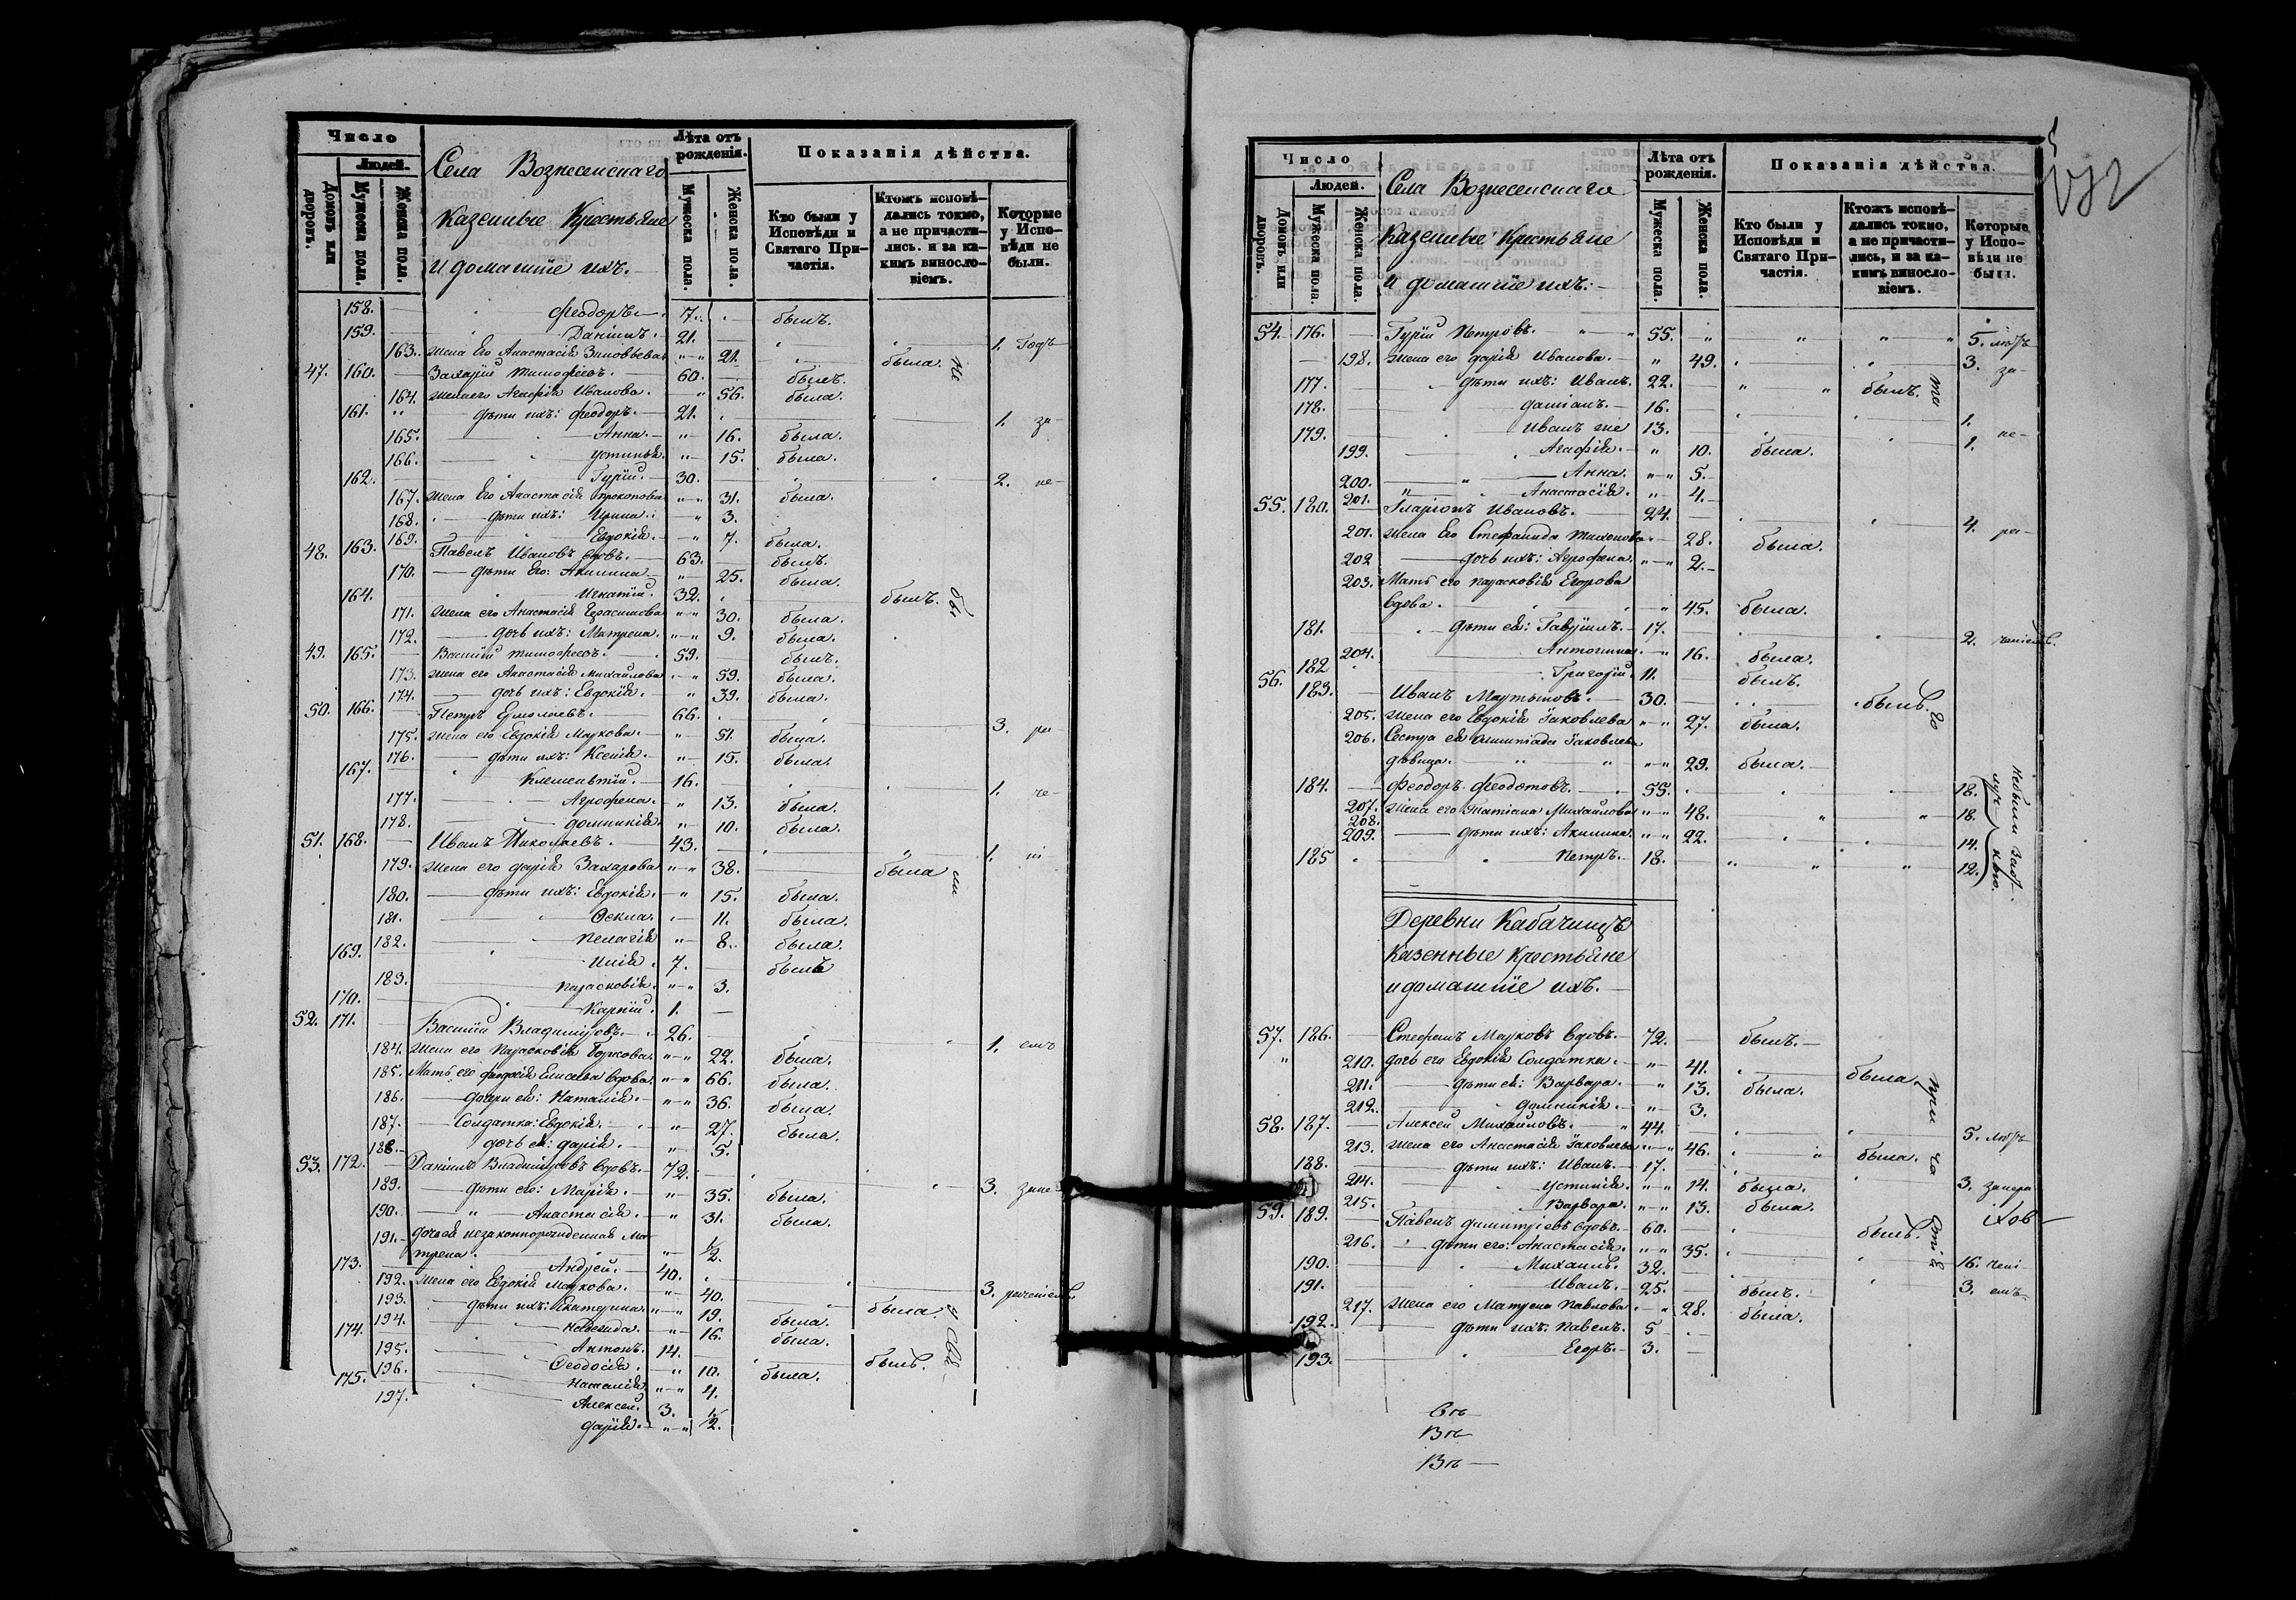 Число
Людей.
Домовъ или дворовъ.
Мужеска пола.
Женска пола.
Села Вознесенскаго
Казенные Крестьяне
и домашніе ихъ.
Лѣта отъ рожденія.
Мужеска пола.
Женска пола.
Показанія дѣйства.
Кто были у Исповѣди и Святаго Причастія.
Ктожъ исповѣдались токмо, а не причастились. и за какимъ винословіемъ.
Которые у Исповѣди не были.
158. Феодоръ. 7. былъ.
159. Даніилъ. 21. 1. Годъ
163. Жена Его Анастасія Зиновьева 21. была. не
47. 160. Захарій Тимофѣевъ. 60. былъ.
164. Жена его Агафія Иванова. 56. была.
161. дѣти ихъ: Феодоръ. 21. 1. за
165. Анна. 16. была.
166. Устинья. 15. была.
162. Гурій. 30. 2. не
167. Жена Его Анастасія Прокопова 31. была.
168. дѣти ихъ: Ирина. 3.
169. Евдокія. 7. была.
48. 163. Павелъ Ивановъ вдовъ. 63. былъ.
170. дѣти Его: Акилина. 25. была.
164. Игнатій. 32. былъ. бы
171. Жена его Анастасія Герасимова 30. была.
172. дочь ихъ: Матрена. 9. была.
49. 165. Василій Тимофѣевъ. 59. былъ.
173. Жена его Анастасія Михайлова 59. была.
174. дочь ихъ: Евдокія. 39. была.
50. 166. Петръ Ермолаевъ. 66. 3. ра
175. Жена его Евдокія Маркова. 51. была.
176. дѣти ихъ: Ксенія. 15. была.
167. Климентій. 16. 1. че
177. Агрофена. 13. была.
178. Домникія. 10. была.
51. 168. Иванъ Николаевъ. 43. 1. ні
179. Жена его Дарія Захарова 38. была ли
180. дѣти ихъ: Евдокія. 15. была.
181. Ѳекла. 11. была.
182. Пелагія 8. была.
169. Илія. 7. былъ
183. Парасковія. 3.
170. Карпій. 1.
52. 171. Василій Владиміровъ. 26. 1. емъ
184. Жена его Парасковія Борисова. 22. была.
185. Мать его Елисеева вдова. 66. была.
186. дочери ея: Наталія. 36. была.
187. Солдатка: Евдокія. 27. была.
188. дочь ея: Дарія. 5.
53. 172. Даніилъ Владиміровъ вдовъ. 72. 3. зане
189. дѣти его: Марія. 35. была.
190. Анастасія. 31. была.
191. дочь ея незаконнорожденная Матрена. 1/2.
173. Андрей. 40. 3. раченіемъ.
192. Жена его Евдокія Маркова. 40. была. у Свя-
193. дѣти ихъ: Екатерина. 19. была.
194. 16. была.
174. Антонъ. 14. былъ.
195. Ѳеодосія. 10. была.
196. Наталія. 4.
175. Алексѣй. 3.
197. Дарія. 1/2.
Число
Людей.
Домовъ или дворовъ.
Мужеска пола.
Женска пола.
Села Вознесенскаго
Казенные Крестьяне
и домашніе ихъ.
Лѣта отъ рожденія.
Мужеска пола.
Женска пола.
Показанія дѣйства.
Кто были у Исповѣди и Святаго Причастія.
Ктожъ исповѣдались токмо, а не причастились, и за какимъ винословіемъ.
Которые у Исповѣди не были.
54. 176. Гурій Петровъ. 55. 5. лѣтъ
198. Жена его Дарія Иванова. 49. 3. за
177. дѣти ихъ: Иванъ. 22. былъ. та
178. Даміанъ. 16. 1.
179. Иванъ же 13. 1. не-
199. Агафія. 10. была.
200. Анна. 5.
201. Анастасія. 4.
55. 180. Иларіонъ Ивановъ. 24. 4. ра-
201. Жена Его Стефанида Тихонова 28. была.
202 дочь ихъ: Агрофена. 2.
203. Мать его Парасковія Егорова
вдова. 45. была.
181. дѣти ея: Гавріилъ. 17. 2. ченіемъ.
204. Антонина. 16. была.
182 Григорій. 11. былъ.
56. 183. Иванъ Мартыновъ. 30. былъ. го
205. Жена его Евдокія Іаковлева 27. была.
206. Сестра ея Олимпіада Іаковлева
дѣвица. 29. была.
184. Феодоръ Феодотовъ. 55. 18.
207. Жена его Татіана Михайлова 48. 18.
208.
209. дѣти ихъ: Акилина. 22. 14.
185 Петръ. 18. 12.
Деревни Кабачищъ
Казенные Крестьяне
и домашніе ихъ.
57. 186. Стефанъ Марковъ вдовъ. 72. былъ.
210. дочь его Евдокія Солдатка. 41. была. При
211. дѣти ея: Варвара. 13. была.
212. Домникія. 3.
58. 187. Алексѣй Михайловъ. 44. 5. лѣтъ
213. Жена его Анастасія Іаковлева 46. была. ча
188. дѣти ихъ: Иванъ. 17. 3. занера
214. Устинія. 14. была.
215. Варвара. 13. была.
59. 189. Павелъ Димитріевъ вдовъ. 60. былъ. стія
216. дѣти его: Анастасія. 35. 16. чені
190. Михаилъ. 32. 3. емъ
191. Иванъ. 25. былъ.
217. Жена его Матрена Павлова. 28. была.
192. дѣти ихъ: Павелъ. 5
193. Егоръ. 3.